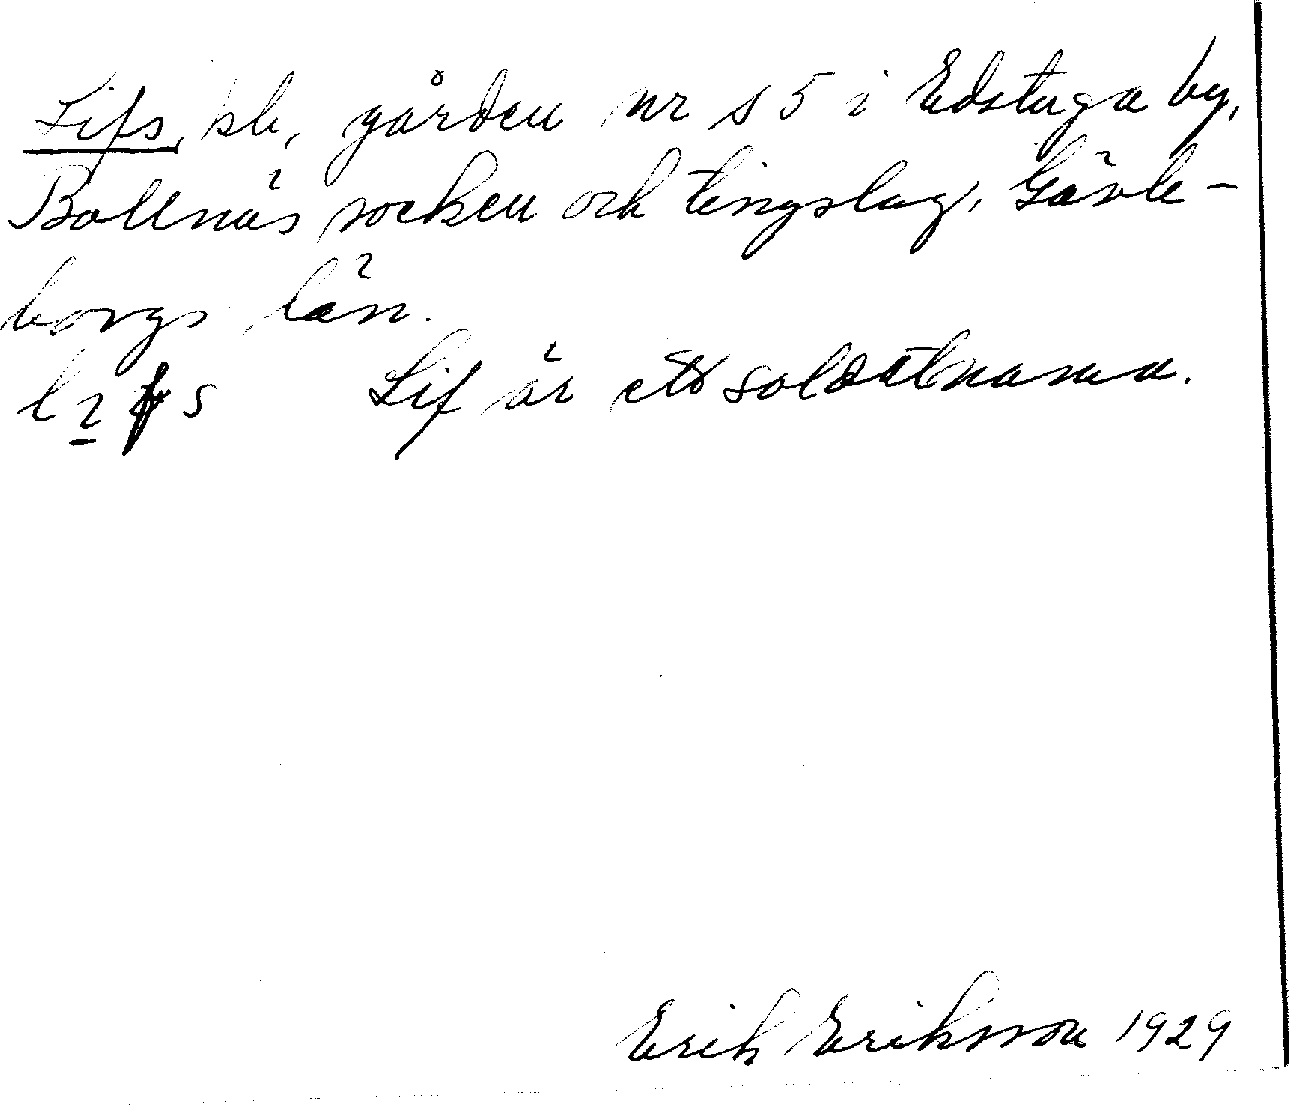 Lifs, kb, gården nr 15 i Edstuga by,
Bollnäs socken och tingslag, Gävle-
borgs län.
Lif är ett soldatnamn.
Erik Eriksson 1929